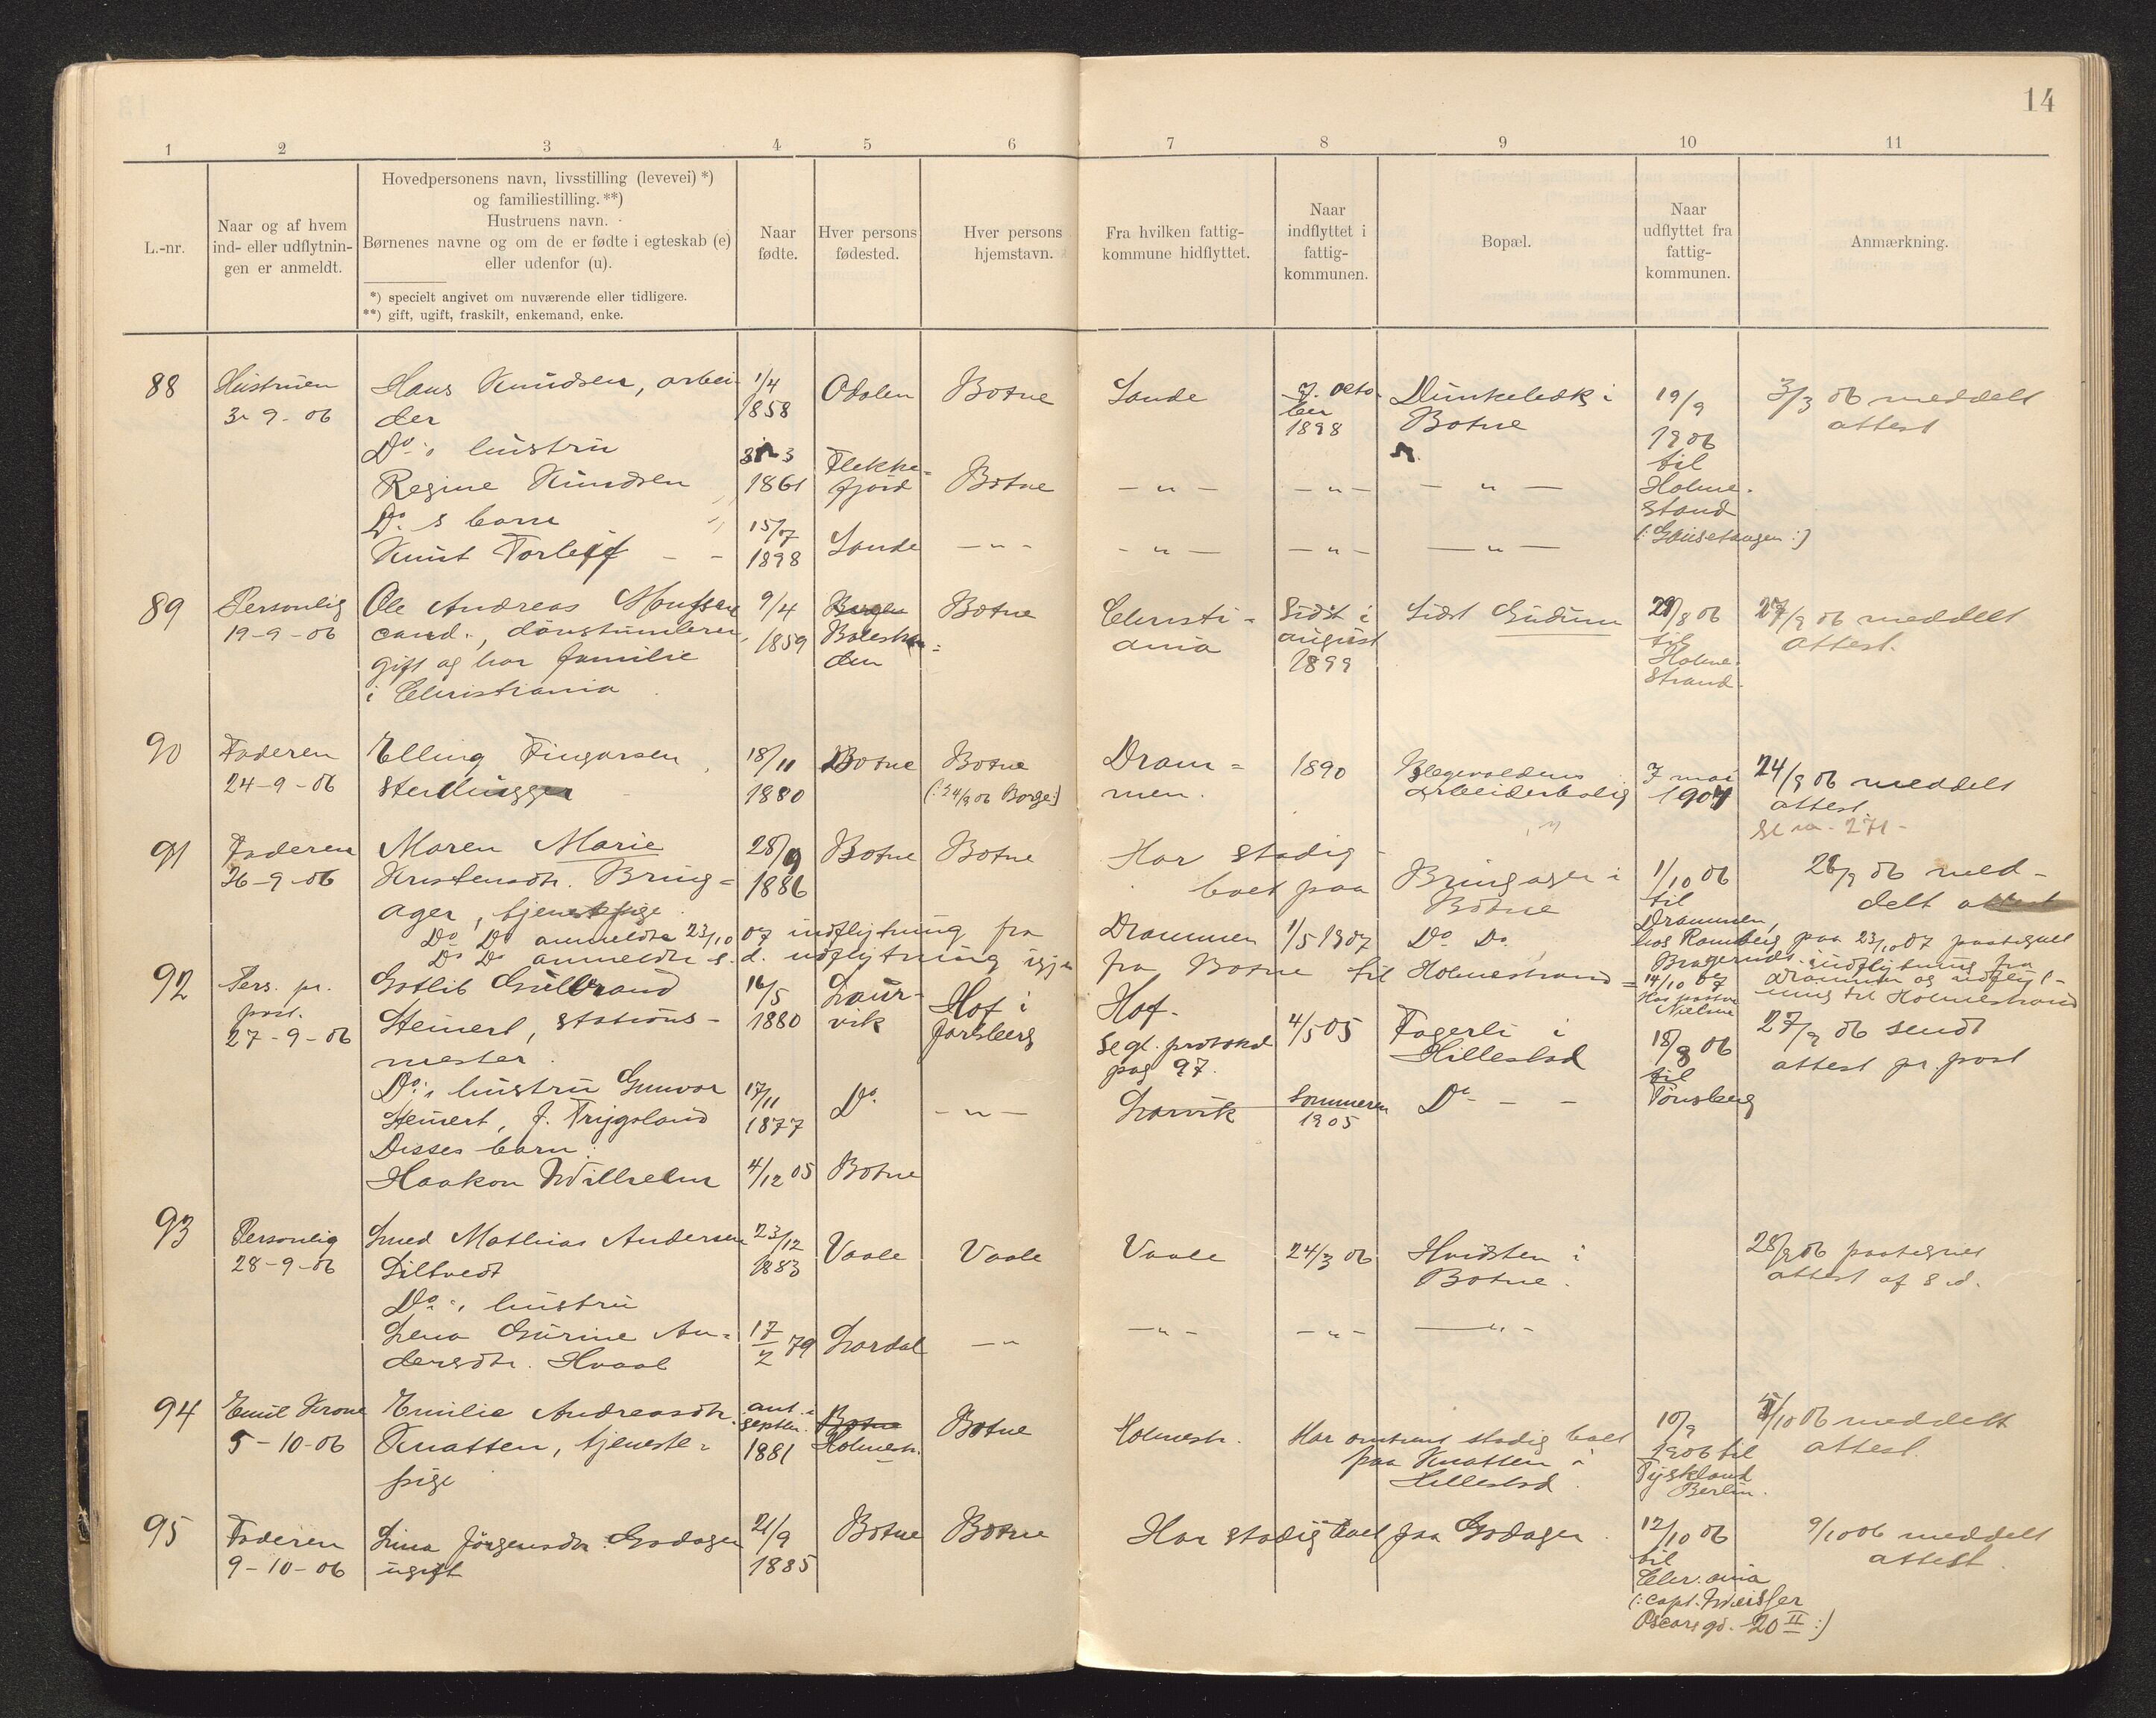 14
1 2 3 4 5 6 7 8 9 10 11
L.-nr.
Naar og af hvem
ind- eller udflytnin-
gen er anmeldt.
Hovedpersonens navn, livsstilling (levevei) *)
og familiestilling. **)
Hustruens navn.
Børnenes navne og om de er fødte i egteskab (e)
eller udenfor (u).
*) specielt angivet om nuværende eller tidligere.
**) gift, ugift, fraskilt, enkemand, enke.
Naar
fødte.
Hver persons
fødested.
Hver persons
hjemstavn.
Fra hvilken fattig-
kommune hidflyttet.
Naar
indflyttet i
fattig-
kommunen.
Bopæl.
Naar
udflyttet fra
fattig-
kommunen.
Anmærkning.
88
Hustruen
3-9-06
Hans Knudsen, arbei-
der
Do's hustru
Regine Knudsen
Do's barn
Knut Torleif
1/4
1858
1861
15/7
1898
Odalen
Flekke-
fjord
Sande
Botne
Botne
— " —
Sande
— " —
— " —
7. octo-
ber
1898
— " —
— " —
i
Botne
— " —
— " —
19/9
1906
til
Holme-
strand
3/3 06 meddelt
attest
89
Personlig
19-9-06
Ole Andreas
cand.,
gift og har familie
i Christiania
9/4
1859
Botne
Christi-
ania
Sidst i
august
1899
Sidst Gudum
/8 06
til
Holme-
strand
/9 06 meddelt
attest.
90
Faderen
24-9-06
Elling Fingarsen
Stenhugger
18/11
1880
Botne
Botne
(: 24/9 06 Borge :)
Dram-
men.
1890
arbeiderbolig
7 mai
1904
24/9 06 meddelt
attest.
Se no. 271-
91
Faderen
26-9-06
Maren Marie
Kristensdtr. Bring-
ager, tjenestpige
Do Do anmeldte 23/10 07 indflytning fra
Do Do anmeldte s. d. udflytning igjen
28/9
1886
Botne
Botne
Har stadig
boet paa
Bringager i
Botne
Drammen
1/5 1907
Do Do
fra Botne til Holmestrand
1/10 06
til
Drammen,
hos Ramberg
Bragernes.
14/10 07
Hos pastor
Nielsen
26/9 06 med-
delt attest
paa 23/10 07 paategnet
indflytning fra
Drammen og udflyt-
ning til Holmestrand
92
Pers. pr.
post.
27-9-06
Gotlib Gulbrand
Steinert, stations-
mester
Do's hustru Gunvor
Steinert, f. Trygsland
Disses barn:
Haakon Wilhelm
16/5
1880
17/11
1877
4/12 05
Laur-
vik
Do
Botne
Hof i
Jarlsberg
— " —
Hof.
Se gl. protokol
pag 97.
Larvik
4/5 05
Sommeren
1905
Fagerli i
Hillestad
Do - -
18/9 06
til
Tönsberg
27/9 06 sendt
attest pr. post
93
Personlig
28-9-06
Smed Mathias Andersen
Siltvedt
Do's hustru
Lena Gurine An-
dersdtr. Hvaal
23/12
1883
17/2 79
Vaale
Lardal
Vaale
— "
Vaale
— " —
24/3 06
— " —
Hvidsten i
Botne.
— " —
28/9 06 paategnet
attest af s. d.
94
Emil Krone
5-10-06
Emilie Andreasdtr.
Knatten, tjeneste-
pige
ant. i
septbr.
1881
Botne
Holmestr.
Botne
Holmestr.
Har omtrent stadig boet
paa Knatten i
Hillestad
10/9
1906 til
Tyskland
Berlin.
5/10 06 meddelt
attest.
95
Faderen
9-10-06
Lina Jörgensdtr. Godager
ugift
21/9
1885
Botne
Botne
Har stadig boet paa Godager.
12/10 06
til
Chr.ania
(: capt. Weisser
Oscarsgd. 20 II :)
9/10 06 meddelt
attest.